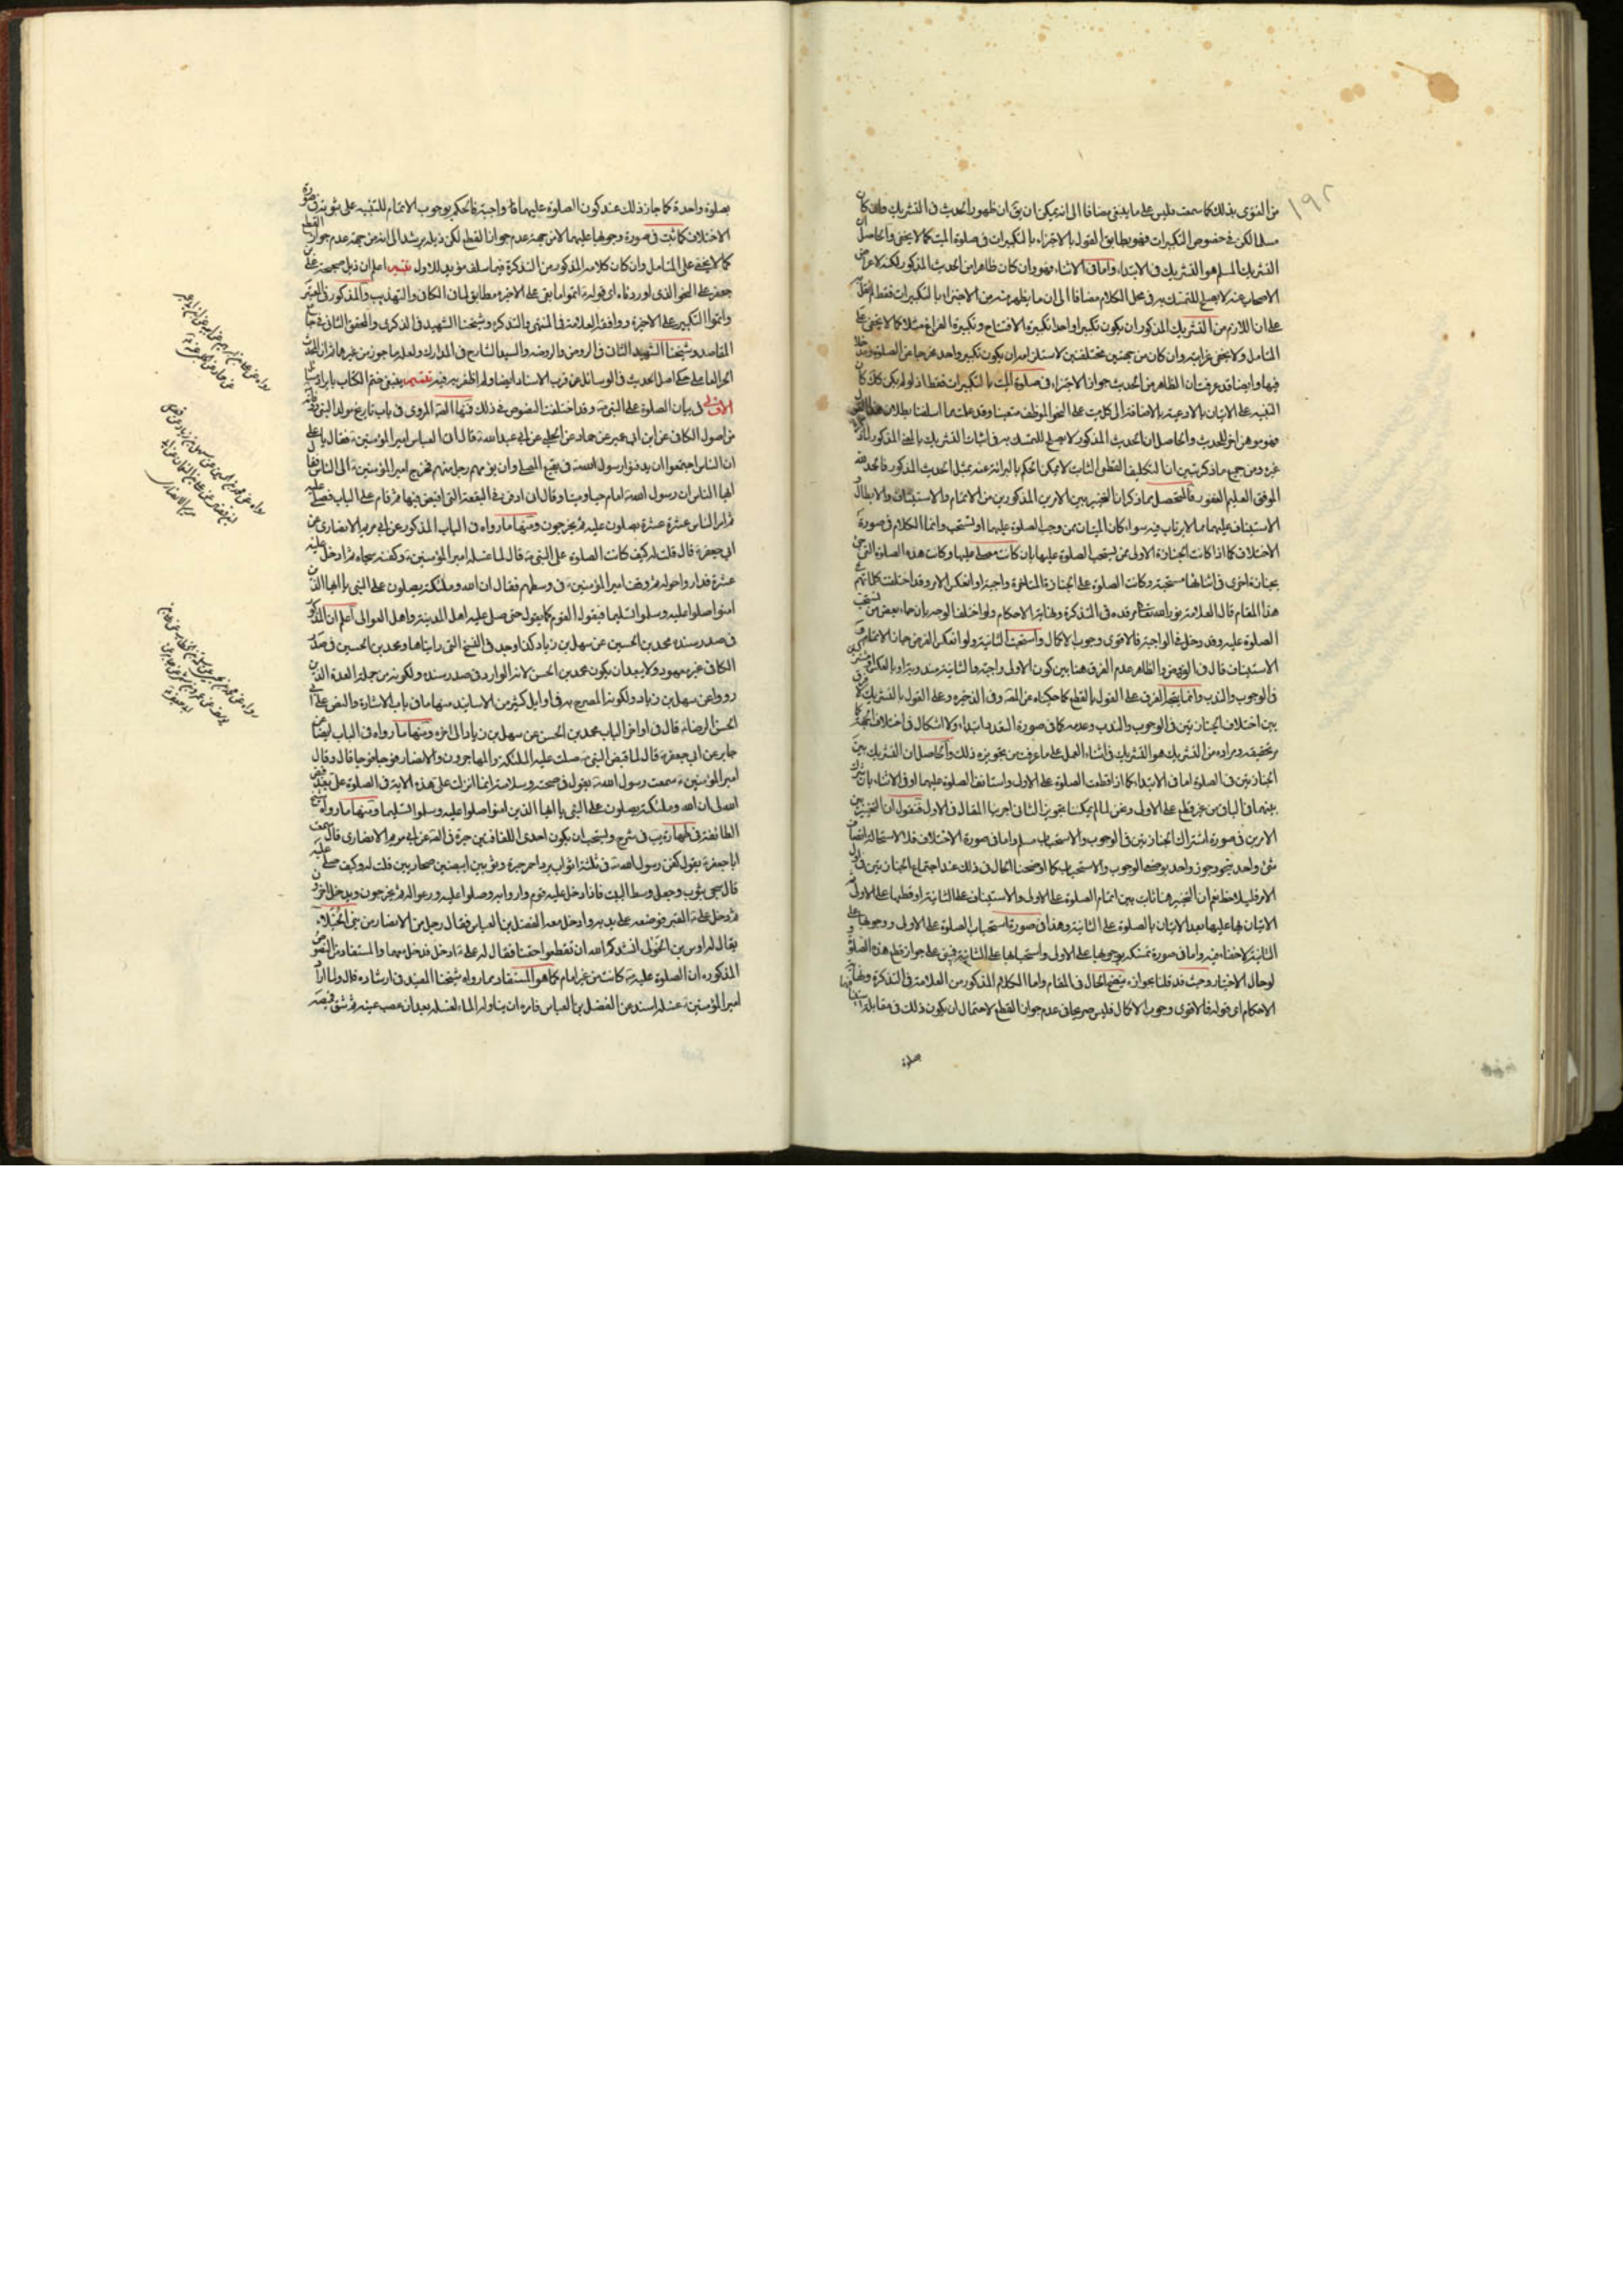 من الفتوى بذلك كما سمعت فليس على ما ينبغى مضافا الى انه يمكن ان يق ان ظهور الحديث فى التشريك وان كان
مسلما لكن فى خصوص التكبيرات فهو يطابق القول بالاجتزاء بالتكبيرات فى صلوة الميت كما لا يخفى والحاصل ان
التشريك المسلم هو التشريك فى الابتداء واما فى الاثناء فهو وان كان ظاهرا من الحديث المذكور لكنه لاعراض
الاصحاب عنه لا يصلح للتمسك به فى محل الكلام مضافا الى ان ما يظهر منه من الاجتزاء بالتكبيرات فقط
على ان اللازم من التشريك المذكور ان يكون تكبيرا واحدا تكبيرة الافتتاح وتكبيرة الفراغ مثلا كما لا يخفى على
المتامل ولا يخفى غرابته وان كان من جهتين مختلفتين لاستلزامه ان يكون تكبير واحد مخرجا من الصلوة
فيها وايضا قد عرفت ان الظاهر من الحديث جواز الاجتزاء فى صلوة الميت بالتكبيرات فقط اذ لو لم يكن كك كان
التنبيه على الاتيان بالادعية بالاضافة الى كل ميت على النحو الموظف متعينا وقد علمت مما اسلفنا بطلان هذا القول
فهو موهن اخر للحديث والحاصل ان الحديث المذكور لا يصلح للتمسك به فى اثبات التشريك بالنحو المذكور
غيره ومن جميع ما ذكر تبين ان التكليف القطعى الثابت لا يمكن الحكم بالبرائة عنه بمثل الحديث المذكور فالحمد لله
الموفق العليم الغفور فالمتحصل مما ذكر ان التخيير بين الامرين المذكورين من الاتمام والاستيناف والابطال و
الاستيناف عليهما مما لا يرتاب فيه سواء كان الميتان ممن وجب الصلوة عليهما او تستحب وانما الكلام فى صورة
الاختلاف كما اذا كانت الجنازة الاولى ممن يستحب الصلوة عليها بان كانت مصلى عليها وكانت هذه الصلوة التى جئ
بجنازة اخرى فى اثنائها مستحبة وكانت الصلوة على الجنازة المتاخرة واجبة او انعكس الامر وقد اختلفت كلماتهم فى
هذا المقام قال العلامة نور الله تعالى مرقده فى التذكرة ونهاية الاحكام ولو اختلفا الوجه بان جاء بعض من يستحب
الصلوة عليه وقد دخل فى الواجبة فالاقوى وجوب الاكمال واستحب الثانية ولو انعكس الفرض جاز الاتمام و
الاستيناف قال فى الروض والظاهر عدم الفرق هنا بين كون الاولى واجبة والثانية مندوبة او بالعكس
فى الوجوب والندب وانما يتجه الفرق على القول بالقطع كما حكيناه عن الفقه وفى الذخيره وعلى القول بالتشريك لا فرق
بين اختلاف الجنازتين فى الوجوب والندب وعدمه كما فى صورة التعدد ابتداء ولا اشكال فى اختلاف الجهة كما
مر تحقيقه ومراده من التشريك هو التشريك فى اثناء العمل على ما عرفت من تجويزه ذلك والحاصل ان التشريك بين
الجنازتين فى الصلوة اما فى الابتداء كما اذا قطعت الصلوة على الاولى واستانف الصلوة عليهما او فى الاثناء بان شرك
بينهما فى الباقى من غير قطع على الاولى ونحن لما لم يمكننا تجويز الثانى اجرينا المقال فى الاول فنقول ان التخيير بين
الامرين فى صورة اشتراك الجنازتين فى الوجوب والاستحباب مسلم واما فى صورة الاختلاف فلا لاستحالة اتصاف
شئ واحد بنحو وجود واحد بوصف الوجوب والاستحباب كما اوضحنا الحال فى ذلك عند اجتماع الجنازتين فى اول
الامر فليلاحظ نعم ان التخيير هنا ثابت بين اتمام الصلوة على الاولى والاستيناف على الثانية او قطعها على الاولى و
الاتيان بها عليها بعد الاتيان بالصلوة على الثانية وهذا فى صورة استحباب الصلوة على الاولى ووجوبها على
الثانية لا خفاء فيه واما فى صورة تمسك بوجوبها على الاولى واستحبابها على الثانية فيبتنى على جواز قطع هذه الصلوة
لو حال الاختيار وحيث قد قلنا بجوازه فيتضح الحال فى المقام واما الكلام المذكور من العلامة فى التذكرة ونهاية
الاحكام اى قوله فالاقوى وجوب الاكمال فليس صريحا فى عدم جواز القطع لاحتمال ان يكون ذلك فى مقابلة
صلوة
١٩٢
بصلوة واحدة كما جاز ذلك عند كون الصلوة عليهما واجبة فالحكم بوجوب الاتمام للتنبيه على ثبوته فى صورة
الاختلاف كما ثبت فى صورة وجوبها عليهما لا من جهة عدم جواز القطع لكن ذيله يرشد الى انه من جهة عدم جواز القطع
كما لا يخفى على المتامل وان كان كلامه المذكور من التذكرة فيما سلف مؤيد للاول تنبيه اعلم ان ذيل صحيحة على بن
جعفر على النحو الذى اوردناه اى قوله اتموا ما بقى على الاخيرة مطابق لما فى الكافى والتهذيب والمذكور فى المعتبر
واتموا التكبير على الاخيرة ووافقه العلامة فى المنتهى والتذكره وشيخنا الشهيد فى الذكرى والمحقق الثانى فى جامع
المقاصد وشيخنا الشهيد الثانى فى الروض والروضه والسيد الشارح فى المدارك ولعله ماخوذ من غيرهما ثم ان المحدث
الحر العاملى حكى اصل الحديث فى الوسائل عن قرب الاسناد ايضا ولم اظفر به فيه تتميم ينبغى ختم الكتاب بايراد مسائل
الاولى فى بيان الصلوة على النبى ص وقد اختلفت النصوص فى ذلك فمنها المروى فى باب تاريخ مولد النبى ووفاته
من اصول الكافى عن ابن ابى عمير عن حماد عن الحلبى عن ابى عبد الله ع قال اتى العباس امير المؤمنين ع فقال يا على
ان الناس اجتمعوا ان يدفنوا رسول الله ص فى بقيع المصلى وان يؤمهم رجل منهم فخرج امير المؤمنين ع الى الناس فقال
ايها الناس ان رسول الله ص امام حيا وميتا وقال ان ادفن فى البقعة التى اقبض فيها ثم قام على الباب فصلى عليه
ثم امر الناس عشرة عشرة يصلون عليه ثم يخرجون ومنها ما رواه فى الباب المذكور عن ابى مريم الانصارى عن
ابى جعفر ع قال قلت له كيف كانت الصلوة على النبى ص قال لما غسله امير المؤمنين ع وكفنه سجاه ثم ادخل عليه
عشرة فداروا حوله ثم وقف امير المؤمنين ع فى وسطهم فقال ان الله وملئكته يصلون على النبى يا ايها الذين
امنوا صلوا عليه وسلموا تسليما فيقول القوم كما يقول حتى صلى عليه اهل المدينة واهل العوالى اعلم ان المذكور
فى صدر سنده محمد بن الحسين عن سهل بن زياد كذا وجد فى النسخ التى رايناها ومحمد بن الحسين فى صدر
الكافى غير معهود ولا يبعد ان يكون محمد بن الحسن لانه الوارد فى صدر سنده ولكونه من جملة العدة الذين
رووا عن سهل بن زياد ولكونه المصرح به فى اوايل كثير من الاسانيد منها ما فى باب الاشارة والنص على ابى
الحسن الرضا ع قال فى اواخر الباب محمد بن الحسن عن سهل بن زياد الى اخره ومنها ما رواه فى الباب ايضا عن
جابر عن ابى جعفر ع قال لما قبض النبى ص صلت عليه الملئكة والمهاجرون والانصار فوجا فوجا قال وقال
امير المؤمنين ع سمعت رسول الله ص يقول فى صحته وسلامته انما انزلت على هذه الاية فى الصلوة على بعد قبض
الله لى ان الله وملئكته يصلون على النبى يا ايها الذين امنوا صلوا عليه وسلموا تسليما ومنها ما رواه شيخ
الطائفة فى فى شرح ويستحب ان يكون احدى اللفافتين حبرة فى عن ابى مريم الانصارى قال سمعت
ابا جعفر ع يقول كفن رسول الله ص فى ثلثة اثواب برد احمر حبرة وثوبين ابيضين صحاريين قلت له وكيف صلى عليه
قال سجى بثوب وجعل وسط البيت فاذا دخل عليه قوم داروا به وصلوا عليه ودعوا له ثم يخرجون ويدخل اخرون
ثم دخل على ع القبر فوضعه على يديه وادخل معه الفضل بن العباس فقال رجل من الانصار من بنى الخيلاء
يقال له اوس بن الخولى انشدكم الله ان تقطعوا حقنا فقال له على ع ادخل فدخل معهما والمستفاد من النصوص
المذكوره ان الصلوة عليه ص كانت من غير امام كما هو المستفاد مما رواه شيخنا المفيد فى ارشاده قال ولما اراد
امير المؤمنين ع غسله استدعى الفضل بن العباس فامره ان يناوله الماء لغسله بعد ان عصب عينه ثم شق قميصه